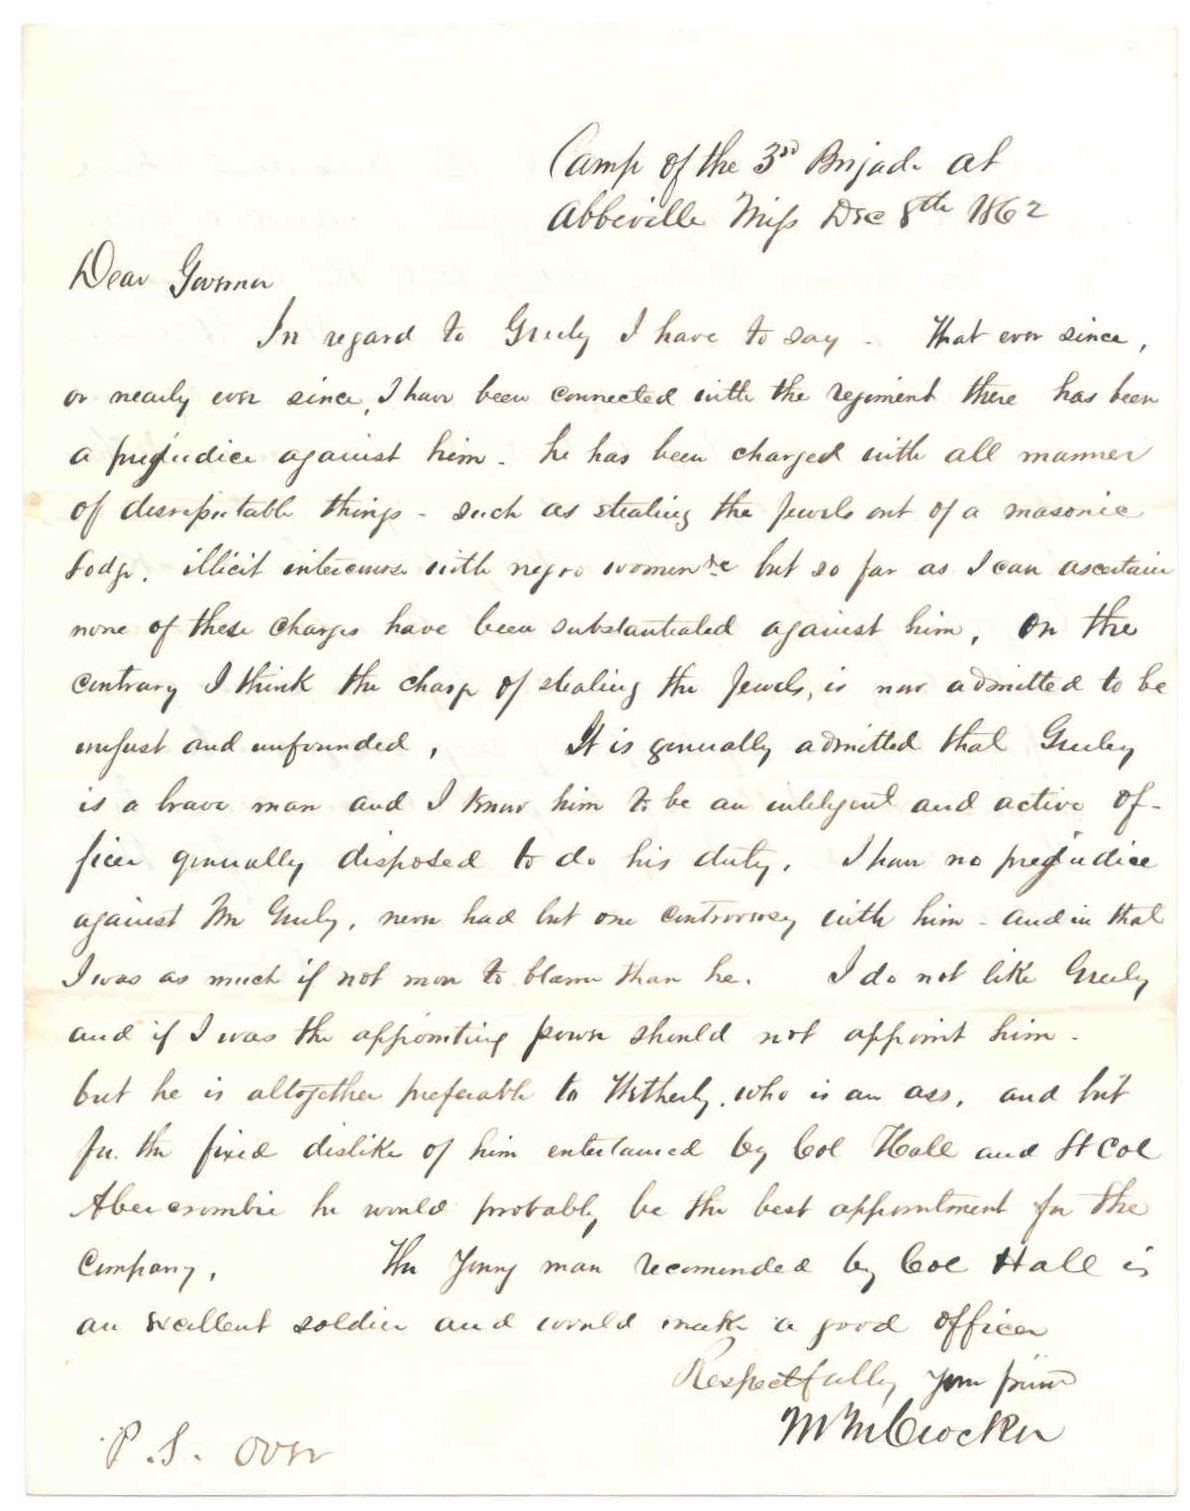 Camp of the 3rd Brigade at
Abbeville Miss Dec 8th 1862
Dear Governor
In regard to Greely I have to say - That ever since,
or nearly ever since, I have been connected with the regiment there has been
a prejudice against him - he has been charged with all manner
of disreputable things - such as stealing the Jewels out of a masonic
Lodge. illicit intercourse with negro women &c but so far as I can ascertain
none of these charges have been substantiated against him, On the
contrary I think the charge of stealing the Jewels, is now admitted to be
unjust and unfounded, It is generally admitted that Greeley
is a brave man and I know him to be an inteligent and active of-
ficer generally disposed to do his duty. I have no prejudice
against Mr Greely, never had but one controversey with him - and in that
I was as much if not more to blame than he. I do not like Greely
and if I was the appointing power should not appoint him -
but he is altogether preferable to Wetherly, who is an ass, and but
for the fixed dislike of him entertained by Col Hall and Lt Col
Abercrombie he would probably be the best appointment for the
Company, The Young man recomended by Col Hall is
an excellent soldier and would make a good officer
Respectfully your friend
M M Crocker
P.S. over